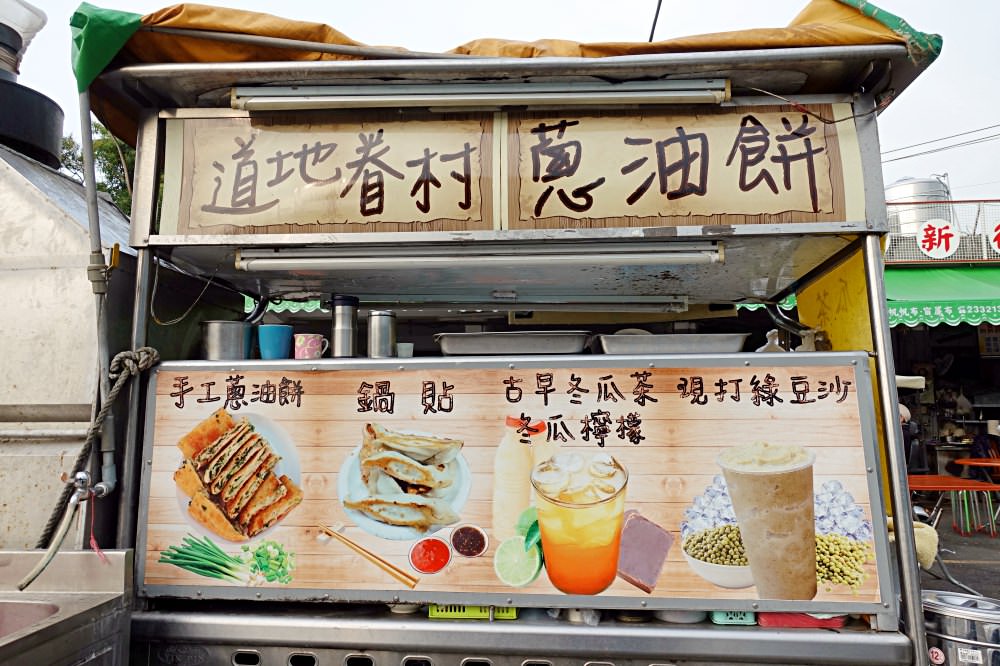 道地眷村 蔥油餅
新
手工蔥油餅
鍋貼
古早冬瓜茶
冬瓜檸檬
現打綠豆沙
12